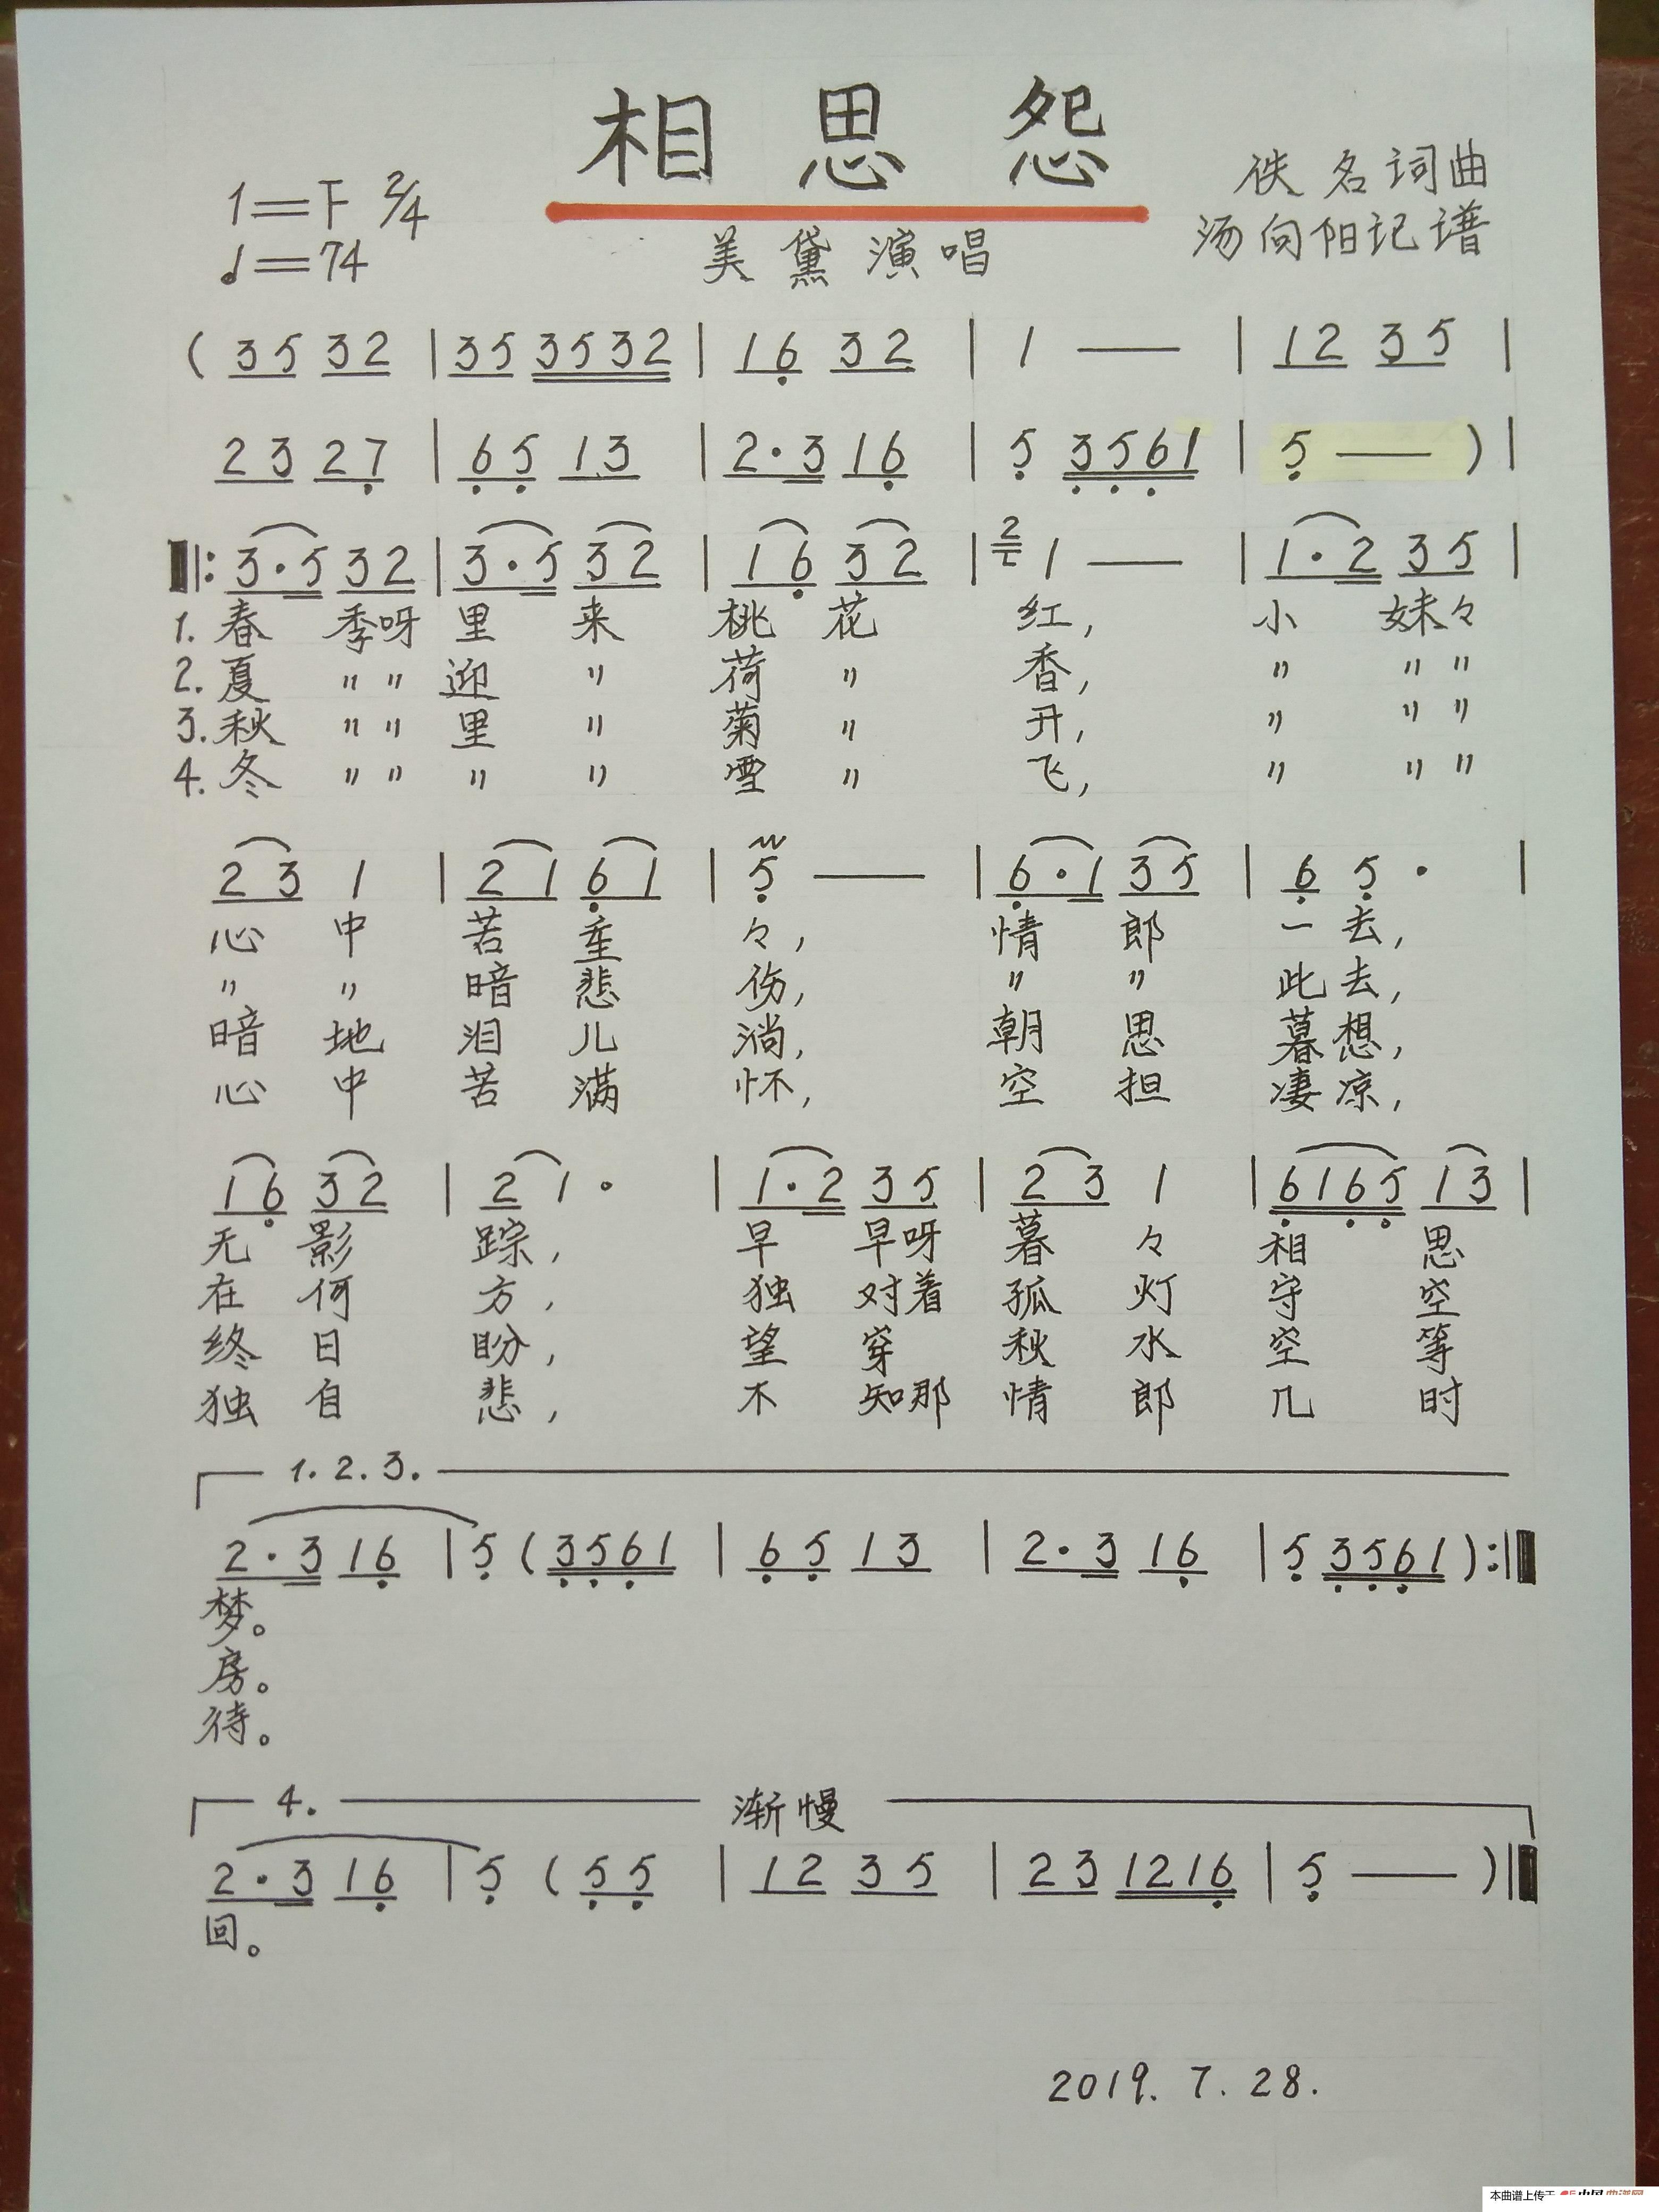 相思怨
1=F 2/4
佚名词曲
♩=74
美黛演唱
汤向阳记谱
( 35 32 | 35 3532 | 16 32 | 1 — | 12 35 |
23 27 | 65 13 | 2·3 16 | 5 3561 | 5 — ) |
|: 3·5 32 | 3·5 32 | 16 32 | 2 1 — | 1·2 35 |
1. 春 季呀 里 来 桃 花 红, 小 妹々
2. 夏 〃〃 迎 〃 荷 〃 香, 〃 〃〃
3. 秋 〃〃 里 〃 菊 〃 开, 〃 〃〃
4. 冬 〃〃 〃 〃 雪 〃 飞, 〃 〃〃
23 1 | 21 61 | 5 — | 6·1 35 | 6 5· |
心 中 苦 重 々, 情 郎 一去,
〃 〃 暗 悲 伤, 〃 〃 此去,
暗 地 泪 儿 淌, 朝 思 暮想,
心 中 苦 满 怀, 空 担 凄凉,
16 32 | 2 1· | 1·2 35 | 23 1 | 6165 13 |
无 影 踪, 早 早呀 暮 々 相 思
在 何 方, 独 对着 孤 灯 守 空
终 日 盼, 望 穿 秋 水 空 等
独 自 悲, 不 知那 情 郎 几 时
1. 2. 3.
2·3 16 | 5 ( 3561 | 65 13 | 2·3 16 | 5 3561 ) :|
梦。
房。
待。
4. 渐慢
2·3 16 | 5 ( 55 | 12 35 | 23 1216 | 5 — ) |
回。
2019. 7. 28.
本曲谱上传于